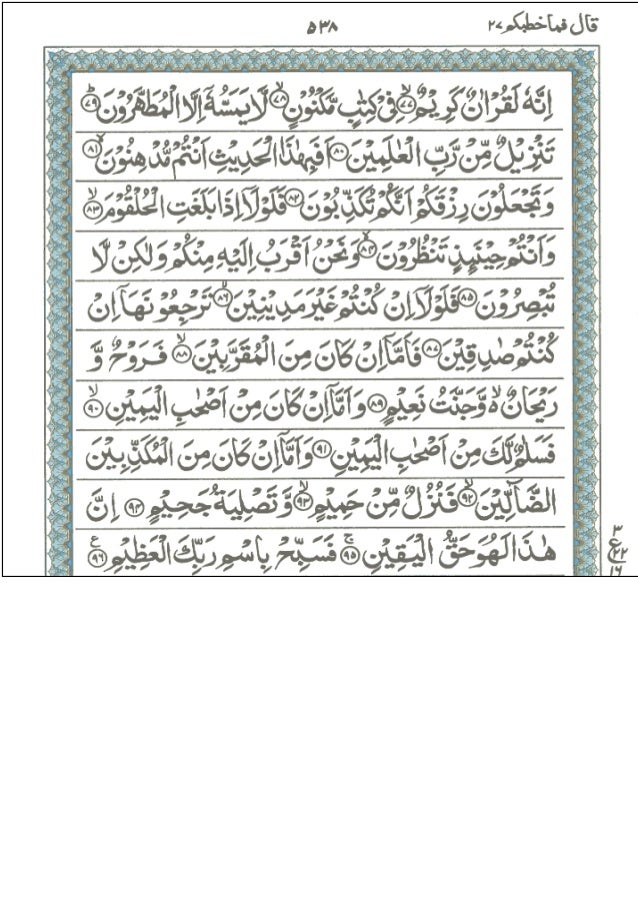 قال فما خطبكم ٢٧ ٥٣٨
اِنَّهٗ لَقُرْاٰنٌ كَرِيْمٌ ۙ﴿٧٧﴾ فِيْ كِتٰبٍ مَّكْنُوْنٍ ۙ﴿٧٨﴾ لَّا يَمَسُّهٗۤ اِلَّا الْمُطَهَّرُوْنَ ؕ﴿٧٩﴾
تَنْزِيْلٌ مِّنْ رَّبِّ الْعٰلَمِيْنَ ﴿٨٠﴾ اَفَبِهٰذَا الْحَدِيْثِ اَنْتُمْ مُّدْهِنُوْنَ ۙ﴿٨١﴾
وَ تَجْعَلُوْنَ رِزْقَكُمْ اَنَّكُمْ تُكَذِّبُوْنَ ﴿٨٢﴾ فَلَوْلَاۤ اِذَا بَلَغَتِ الْحُلْقُوْمَ ۙ﴿٨٣﴾
وَ اَنْتُمْ حِيْنَئِذٍ تَنْظُرُوْنَ ۙ﴿٨٤﴾ وَ نَحْنُ اَقْرَبُ اِلَيْهِ مِنْكُمْ وَ لٰكِنْ لَّا
تُبْصِرُوْنَ ﴿٨٥﴾ فَلَوْلَاۤ اِنْ كُنْتُمْ غَيْرَ مَدِيْنِيْنَ ۙ﴿٨٦﴾ تَرْجِعُوْنَهَاۤ اِنْ
كُنْتُمْ صٰدِقِيْنَ ﴿٨٧﴾ فَاَمَّاۤ اِنْ كَانَ مِنَ الْمُقَرَّبِيْنَ ۙ﴿٨٨﴾ فَرَوْحٌ وَّ
رَيْحَانٌ ۙ۬ وَّ جَنَّتُ نَعِيْمٍ ﴿٨٩﴾ وَ اَمَّاۤ اِنْ كَانَ مِنْ اَصْحٰبِ الْيَمِيْنِ ۙ﴿٩٠﴾
فَسَلٰمٌ لَّكَ مِنْ اَصْحٰبِ الْيَمِيْنِ ﴿٩١﴾ وَ اَمَّاۤ اِنْ كَانَ مِنَ الْمُكَذِّبِيْنَ
الضَّآلِّيْنَ ۙ﴿٩٢﴾ فَنُزُلٌ مِّنْ حَمِيْمٍ ۙ﴿٩٣﴾ وَّ تَصْلِيَةُ جَحِيْمٍ ﴿٩٤﴾ اِنَّ
هٰذَا لَهُوَ حَقُّ الْيَقِيْنِ ۚ﴿٩٥﴾ فَسَبِّحْ بِاسْمِ رَبِّكَ الْعَظِيْمِ ﴿٩٦﴾ع
٣
ع
٢٢
١٦